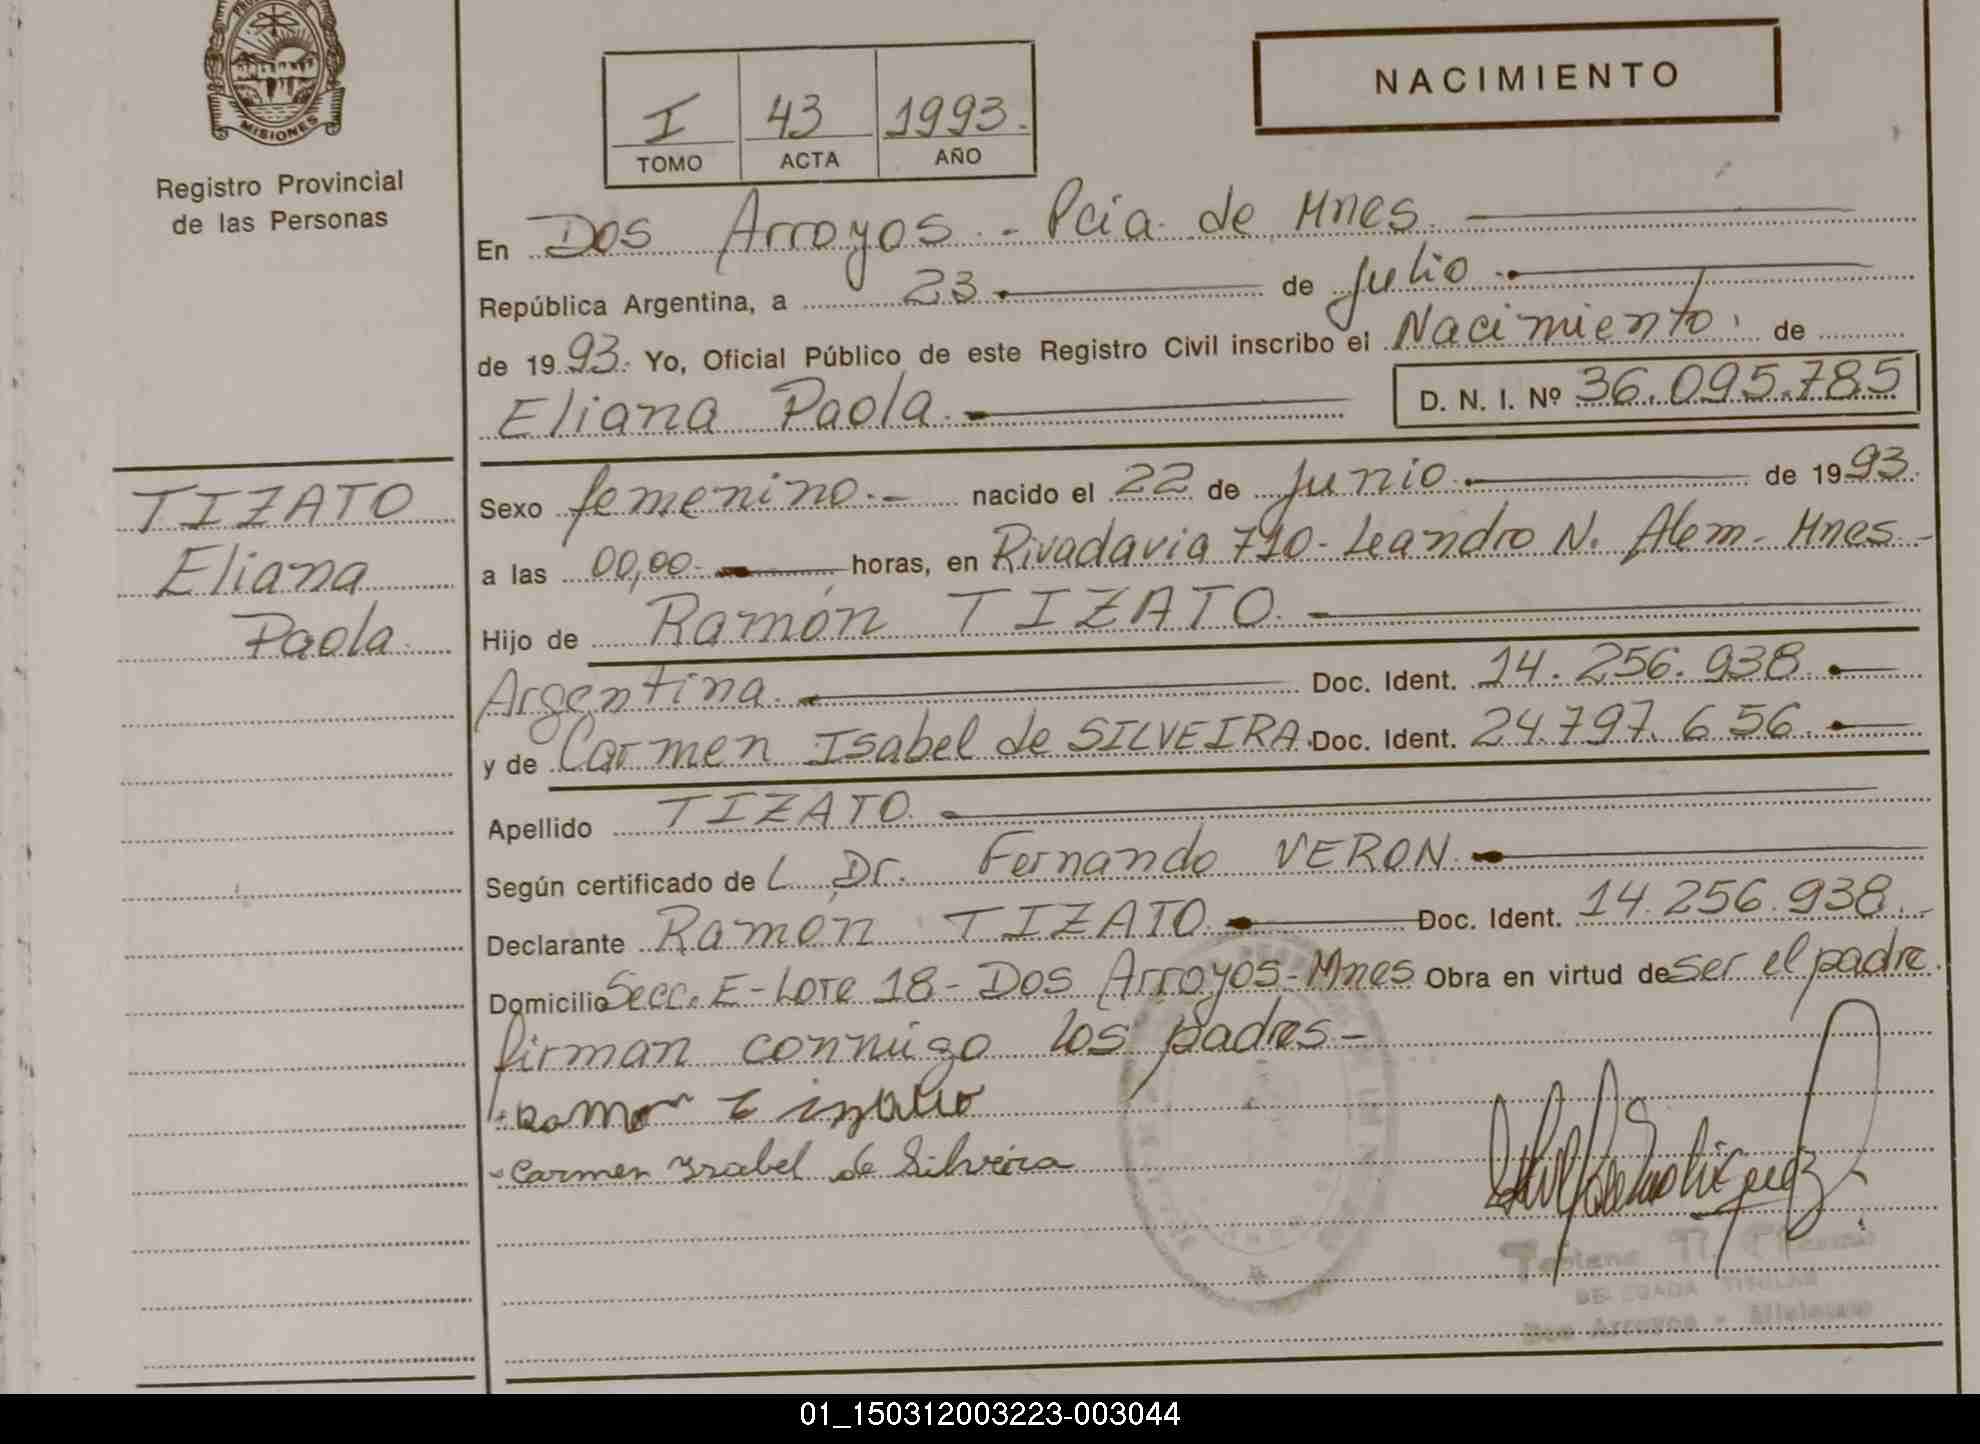 MISIONES
Registro Provincial
de las Personas
I 43 1993.
TOMO ACTA AÑO
NACIMIENTO
En Dos Arroyos - Pcia. de Mnes.
República Argentina, a 23 de Julio
de 1993. Yo, Oficial Público de este Registro Civil inscribo el Nacimiento de
Eliana Paola. D. N. I. Nº 36.095.785
TIZATO
Eliana
Paola.
Sexo femenino.- nacido el 22 de Junio de 1993.
a las 00,00 horas, en Rivadavia 710 - Leandro N. Alem - Mnes -
Hijo de Ramón TIZATO.
Argentina. Doc. Ident. 14.256.938.
y de Carmen Isabel de SILVEIRA. Doc. Ident. 24.797.656.
Apellido TIZATO.
Según certificado de L. Dr. Fernando VERON.
Declarante Ramón TIZATO Doc. Ident. 14.256.938.-
Domicilio Secc. E - Lote 18 - Dos Arroyos - Mnes Obra en virtud de ser el padre.
firman conmigo los padres -
Carmen Ysabel de Silveira
DELEGADA TITULAR
Dos Arroyos - Misiones
01_150312003223-003044